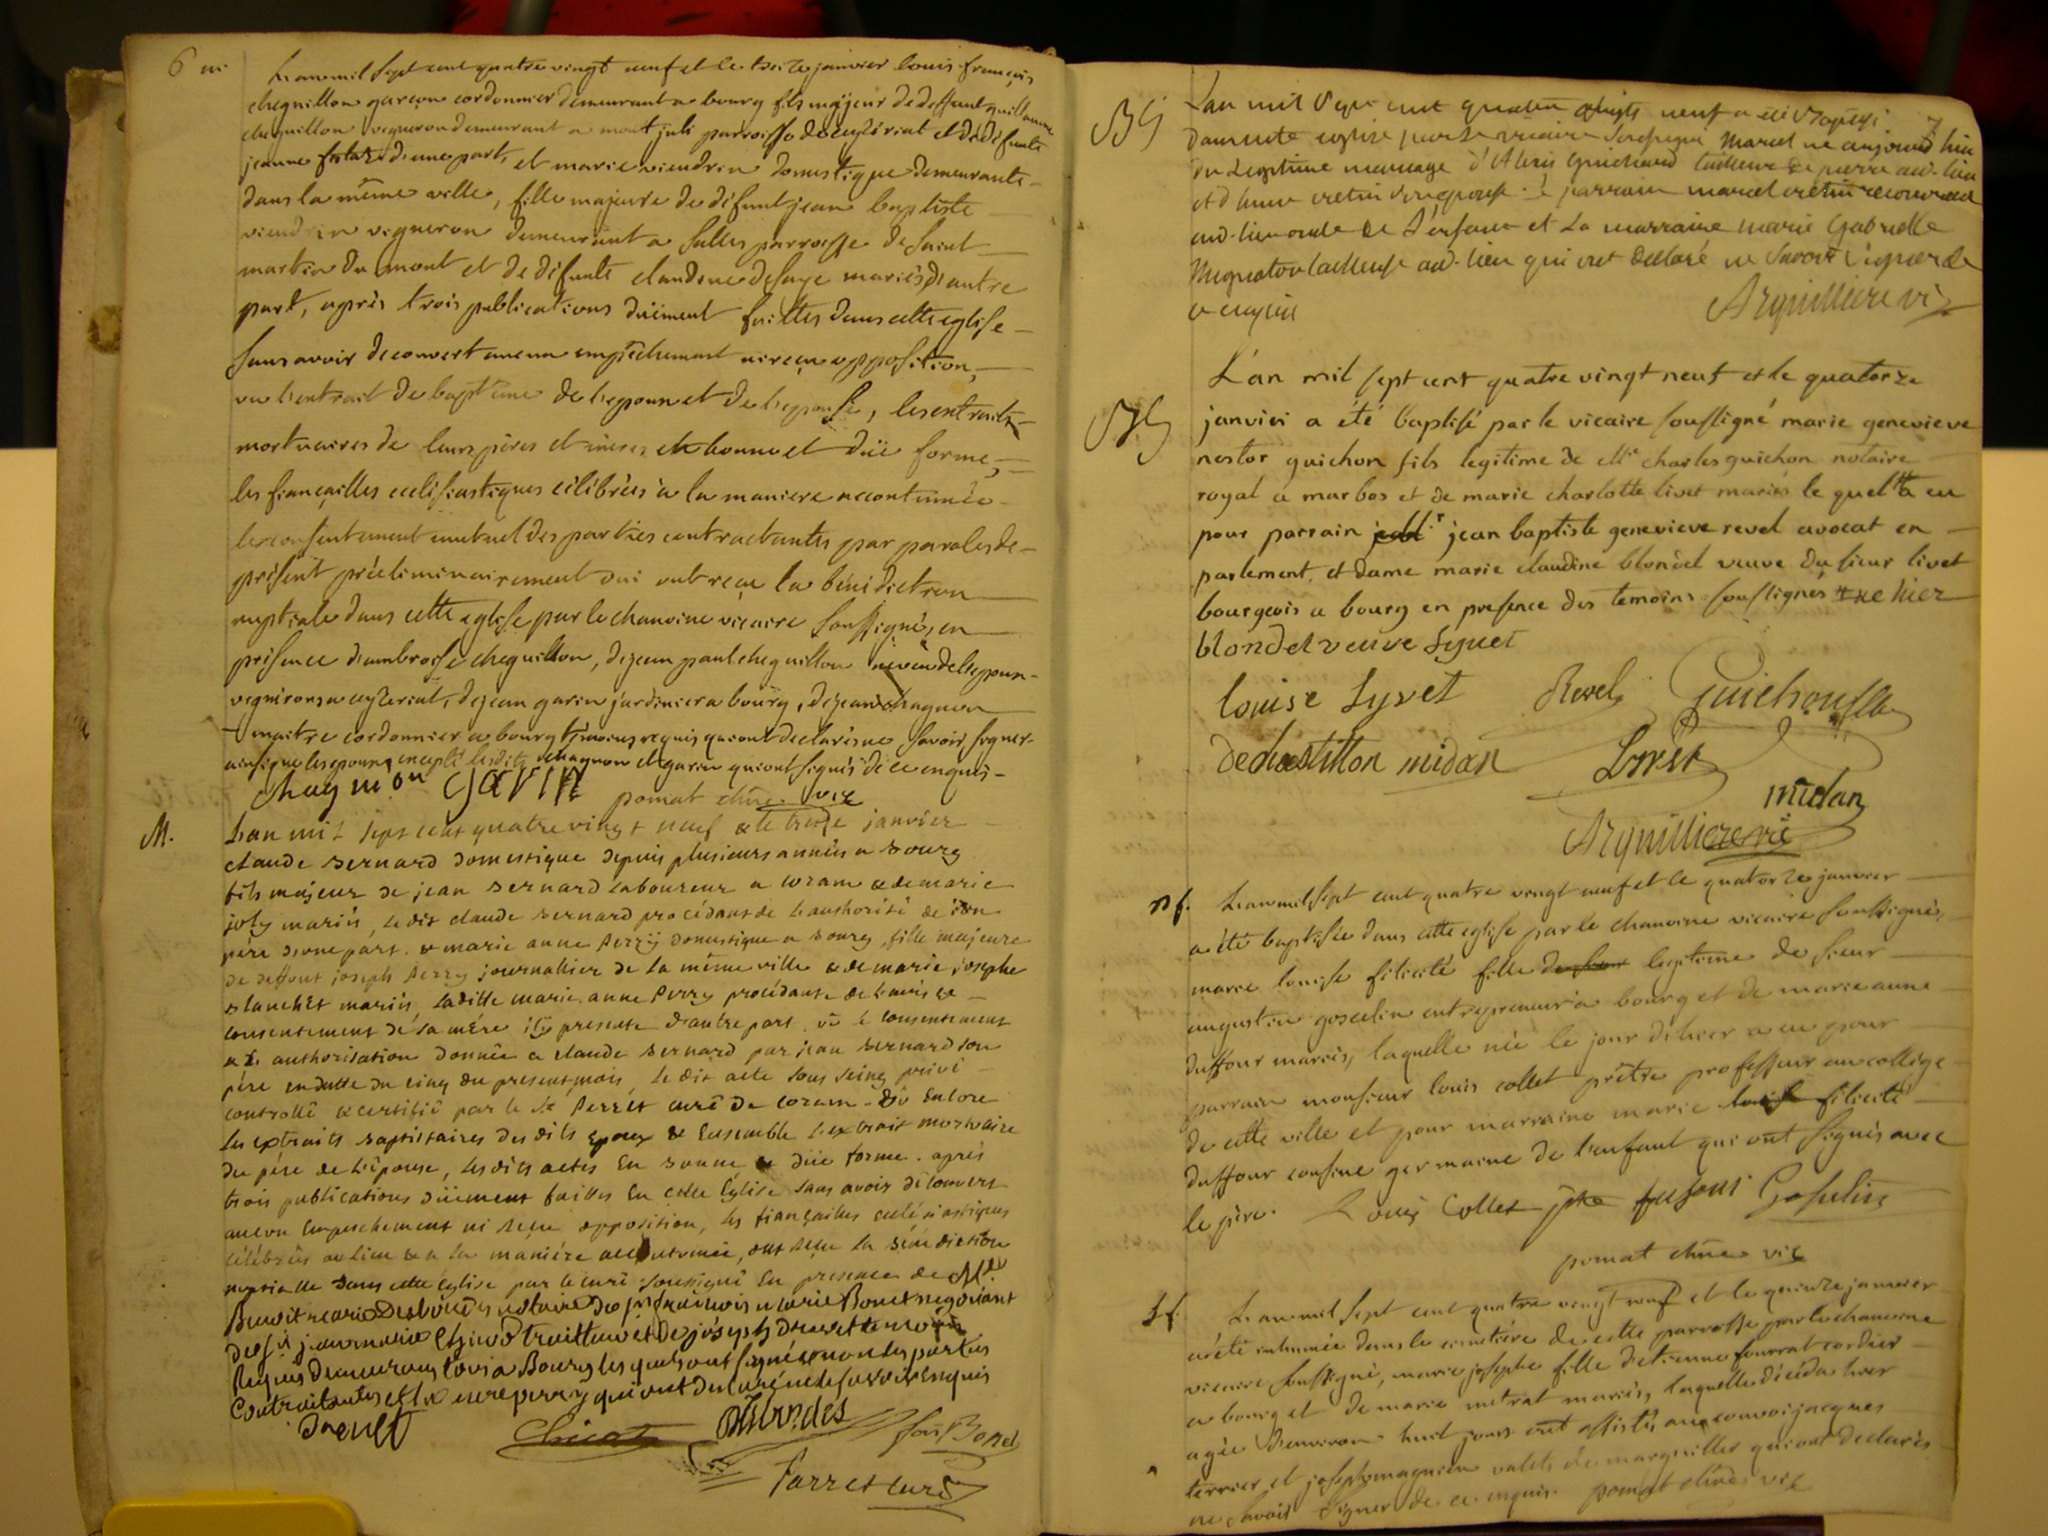 6 m
L'an mil sept cent quatre vingt neuf et le treize janvier louis françois
cheguillon garçon cordonnier demeurant a bourg fils majeur de deffunt guillaume
cheguillon vigneron demeurant a mont juli parroisse de ceyzeriat et de défunte
jeanne d'une part, et marie viendrin domestique demeurante
dans la même ville, fille majeure de défunt jean baptiste
viendrin vigneron demeurant a salles parroisse de saint
martin du mont et de défunte claudine desaye mariés d'autre
part, après trois publications düement faittes dans cette eglise
sans avoir decouvert aucun empêchement ni reçu opposition,
vu l'extrait de baptême de l'epoux et de l'epouse, les extraits
mortuaires de leurs pères et mères en bonne et düe forme,
les fiançailles ecclésiastiques célébrées à la maniere accoutumée
le consentement mutuel des parties contractantes par paroles de
présent préliminairement oui ont reçu la bénédiction
nuptiale dans cette eglise par le chanoine vicaire soussigné, en
présence d'ambroise cheguillon, de jean paul cheguillon neveu de l'epoux
vignerons a ceyzeriat, de jean garin jardinier a bourg, de jean chagnon
maitre cordonnier a bourg témoins requis qui ont declarés ne savoir signer
ainsi que les epoux excepté lesdits chagnon et garin qui ont signés de ce enquis
chagnion garin pomat chne vic
M.
L'an mil sept cent quatre vingt neuf & le treize janvier
claude bernard domestique depuis plusieurs années a bourg
fils majeur de jean bernard laboureur a coran & de marie
joly mariés, le dit claude bernard procédant de l'authorité de son
père d'une part. & marie anne perry domestique a bourg, fille majeure
de deffunt joseph perry journallier de la même ville & de marie josephe
blanchet mariés, la ditte marie anne perry procédante de l'avis &
consentement de sa mére icy presente d'autre part. vû le consentement
& authorisation donnée a claude bernard par jean bernard son
père en datte du cinq du present mois, le dit acte sous seing privé
controllé & certifié par le Sr perret curé de coran. vû encore
les extraits baptistaires des dits epoux & ensemble l'extrait mortuaire
du pére de l'épouse, les dits actes en bonne & düe forme. après
trois publications düement faittes en cette église sans avoir découvert
aucun empechement ni reçu opposition, les fiançailles ecclésiastiques
célébrées au lieu & a la maniére accoutumée, ont reçu la bénédiction
nuptialle dans cette église par le curé soussigné en presence de Mre
Benoit marie Desbordes notaire de sr françois marie Bonet negotiant
de sr jean marie traitteur et de joseph drevet temoins
Requis demeurans tous a Bourg les quels ont signés non les parties
Contractantes et la mere perry qui ont declaré ne le savoir Enquis
Drevet Desbordes fois Bonet
Parret curé
7
L'an mil sept cent quatre vingts neuf a été baptisé
dans cette eglise par le vicaire soussigné Marcel né aujourd'hui
du legitime mariage d'Alexis Guichard tailleur de pierre aud. lieu
et d'Anne cretin son epouse. le parrain marcel cretin
aud. lieu oncle de l'enfant et la marraine marie Gabrielle
tailleuse aud. lieu qui ont declaré ne savoir signer de
ce enquis
Arquilliere vic
L'an mil sept cent quatre vingt neuf et le quatorze
janvier a été baptisé par le vicaire soussigné marie genevieve
nestor guichon fils legitime de Mr charles guichon notaire
royal a marbos et de marie charlotte livet mariés le quel a eu
pour parrain jean baptiste genevieve revel avocat en
parlement, et dame marie claudine blondel veuve du sieur livet
bourgeois a bourg en presence des temoins soussignés né hier
blondel veuve Lyvet
louise Lyvet Revel Guichon
dechastillon midan Livet
midan
Arquilliere vic
Bf.
L'an mil sept cent quatre vingt neuf et le quatorze janvier
a été baptisée dans cette eglise par le chanoine vicaire soussigné,
marie louise félicité fille legitime de sieur
augustin goscelin entrepreneur a bourg et de marie anne
duffour mariés, laquelle née le jour d'hier a eu pour
parrain monsieur louis collet prêtre professeur au collège
de cette ville et pour marraine marie louise félicité
duffour cousine germaine de l'enfant qui ont signés avec
le père. Louis Collet ptre dufour Goscelin
pomat chne vic
Sf.
L'an mil sept cent quatre vingt neuf et le quinze janvier
a été inhumée dans le cimetière de cette parroisse par le chanoine
vicaire soussigné, marie josephe fille d'etienne fournat cordier
a bourg et de marie metrat mariés, laquelle décéda hier
agée d'environ huit jours ont assisté au convoi jacques
terrier et joseph magnien valets de marguillier qui ont declarés
ne savoir signer de ce enquis. pomat chne vic